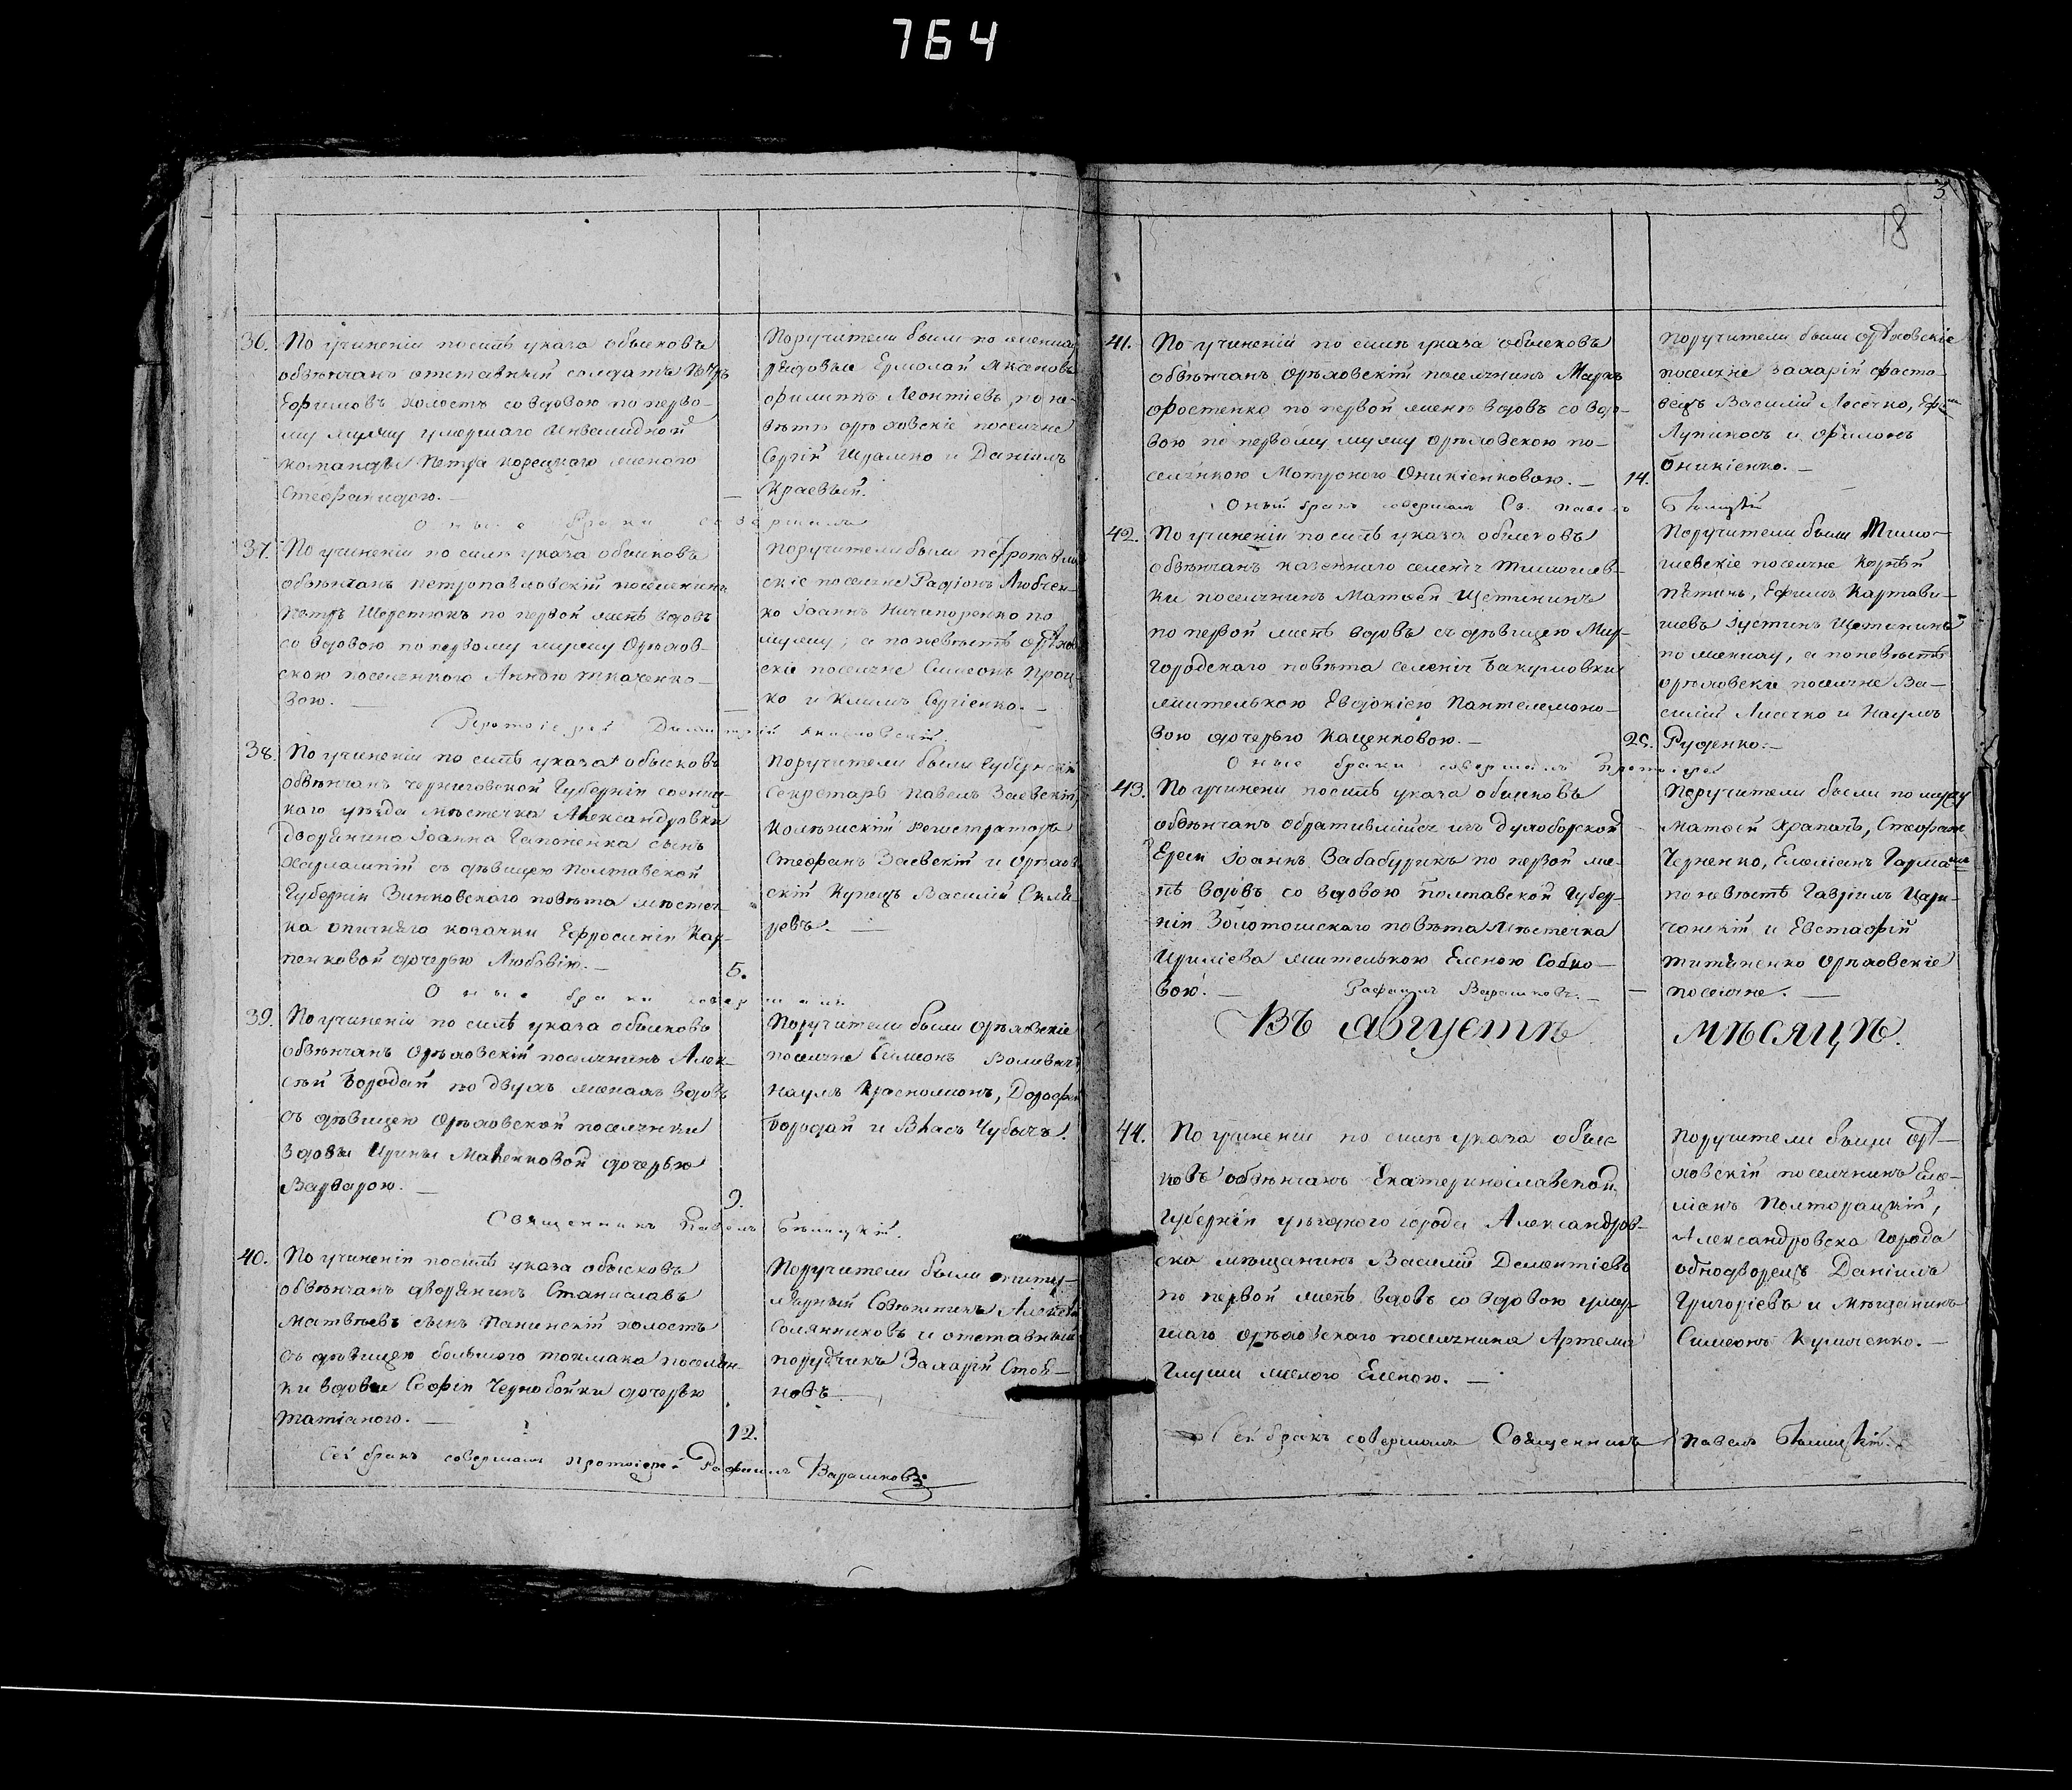 764
3
18
36. По учиненіи посилѣ указа обысковъ
обвѣнчанъ отставный солдатъ Петръ
Ефимовъ холостъ совдовою поперво-
му мужу умершаго Инвалидной
команды Петра Корецкаго женою
Стефанидою. —
Поручители были по жениху
рядовые Ермолай Аксеновъ
Филиппъ Леонтіевъ, по не-
вѣстѣ орѣховскіе поселяне
Сергій Шрамко и Даніилъ
Краевый.
Оные браки совершилъ
37. По учиненіи по силѣ указа обысковъ
обвѣнчанъ петропавловскій поселянинъ
Петръ Шерстюкъ по первой женѣ вдовъ
со вдовою по первому мужу Орѣхов-
скою поселянкою Анною Ткаченко-
вою. —
Поручители были петропавлов
скіе поселяне Радіонъ Любчен-
ко Іоаннъ Ничипоренко по
мужу; а по невѣстѣ орѣхов
скіе поселяне Симеонъ Проц-
ко и Климъ Сергіенко. —
Протоіерей Димитрій
38. По учиненіи по силѣ указа обысковъ
обвѣнчанъ черниговской Губерніи сосниц-
каго уѣзда мѣстечка Александровки
дворянина Іоанна Гапоненка сынъ
Харлампій съ дѣвицею Полтавской
Губерніи Зинковскаго повѣта мѣстеч-
ка опишняго козачки Ефросиніи Кар-
пенковой дочерью Любовію. —
5.
Поручители были Губернскій
Секретарь Павелъ Заевскій
Колежскій регистраторъ
Стефанъ Заевскій и Орѣхов
скій Купецъ Василій Скля
ровъ. —
Оные браки совершилъ
39. По учиненіи по силѣ указа обысковъ
обвѣнчанъ Орѣховскій поселянинъ Алек-
сѣй Бородай по двухъ женахъ вдовъ
съ дѣвицею Орѣховской поселянки
вдовы Ирины Маценковой дочерью
Варварою. —
9.
Поручители были Орѣховскіе
поселяне Симеонъ
Наумъ Красножонъ, Дорофей
Бородай и Власъ Чубычъ.
Священникъ Павелъ Бѣлицкій.
40. По учиненіи посилѣ указа обысковъ
обвѣнчанъ дворянинъ Станиславъ
Матвѣевъ сынъ Панинскій холостъ
съ дѣвицею большого токмака поселян-
ки вдовы Софіи Чернобойки дочерью
Татіаною. —
12.
Поручители были титу-
лярный Совѣтникъ Алексѣй
Солянниковъ и отставный
порутчикъ Захарій Стоя-
новъ —
Сей бракъ совершалъ протоіерей Рафаилъ Варашковъ
41. По учиненіи по силѣ указа обысковъ
обвѣнчанъ Орѣховскій поселянинъ Маркъ
Фостенко по первой женѣ вдовъ со вдо-
вою по первому мужу орѣховскою по-
селянкою Мотроною Оникіенковою. —
14.
Поручители были орѣховскіе
поселяне Захарій Фасто-
вецъ Василій Лесечко, Ефимъ
Лупиносъ и Филимонъ
Оникіенко. —
Оный бракъ совершалъ Св. Павелъ Бѣлицкій
42. По учиненіи посилѣ указа обысковъ
обвѣнчанъ казеннаго селенія Тимошев-
ки поселянинъ Матвей Щетининъ
по первой женѣ вдовъ съ дѣвицею Мир-
городскаго повѣта селенія Бакумовки
жителькою Евдокіею Пантелемоно-
вою дочерью Каценковою. —
Поручители были Тимо-
шевскіе поселяне Корнѣй
Ефимъ Картави-
шевъ Іустинъ Щетининъ
по жениху, а поневѣстѣ
орѣховскіе поселяне Ва-
силій Лисечко и Наумъ
Руденко. —
Оные браки совершилъ Протоіерей
43. По учинени посилѣ указа обысковъ
обвѣнчанъ обратившійся изъ духоборской
Ереси Іоаннъ Бабабурикъ по первой же-
нѣ вдовъ со вдовою полтавской Губер-
ніи Золотошскаго повѣта Мѣстечка
Ирклієва жителькою Еленою Собко-
вою. —
Поручители были по мужу
Матвей Храпачъ, Стефанъ
Черненко, Емеліанъ Гармашъ
по невѣстѣ Гавріилъ Цари-
чанскій и Евстафій
Титаренко Орѣховскіе
поселяне. —
Рафаилъ Варашковъ. —
Въ августѣ мѣсяцѣ.
44. По учиненіи по силѣ указа обыс
ковъ обвѣнчанъ Екатеринославской
Губерніи уѣзднаго города Александров-
ска мѣщанинъ Василій Дементіевъ
по первой женѣ вдовъ со вдовою умер-
шаго орѣховскаго поселянина Артема
Глущи женою Еленою. —
Поручители были орѣ-
ховскій поселянинъ Еме-
ліанъ Полторацкій,
Александровска Города
однодворецъ Даніилъ
Григоріевъ и Мѣщанинъ
Симеонъ Куличенко. —
Сей бракъ совершалъ Священникъ Павелъ Бѣлицкій.